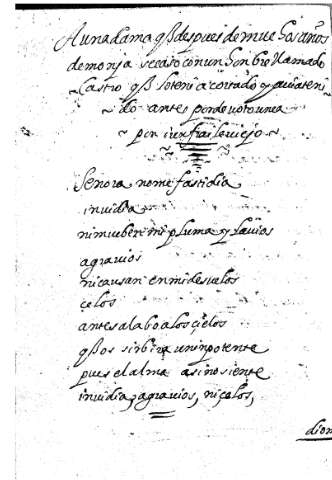 A una dama q̃ después de muchos años
de monja se caso con un honbre llamado
Castro q̃ lo tenia cortado y auia teni
do antes por devoto una
por un fraile viejo
Señora no me fastidia
invidia
ni mueben mi pluma y lavios
agravios
ni causan en mi desvelos
çelos
antes alabo a los çielos
q̃ os sirbiera un inpotente
pues el alma asi no siente
invidia, agravios, ni çelos,
dion